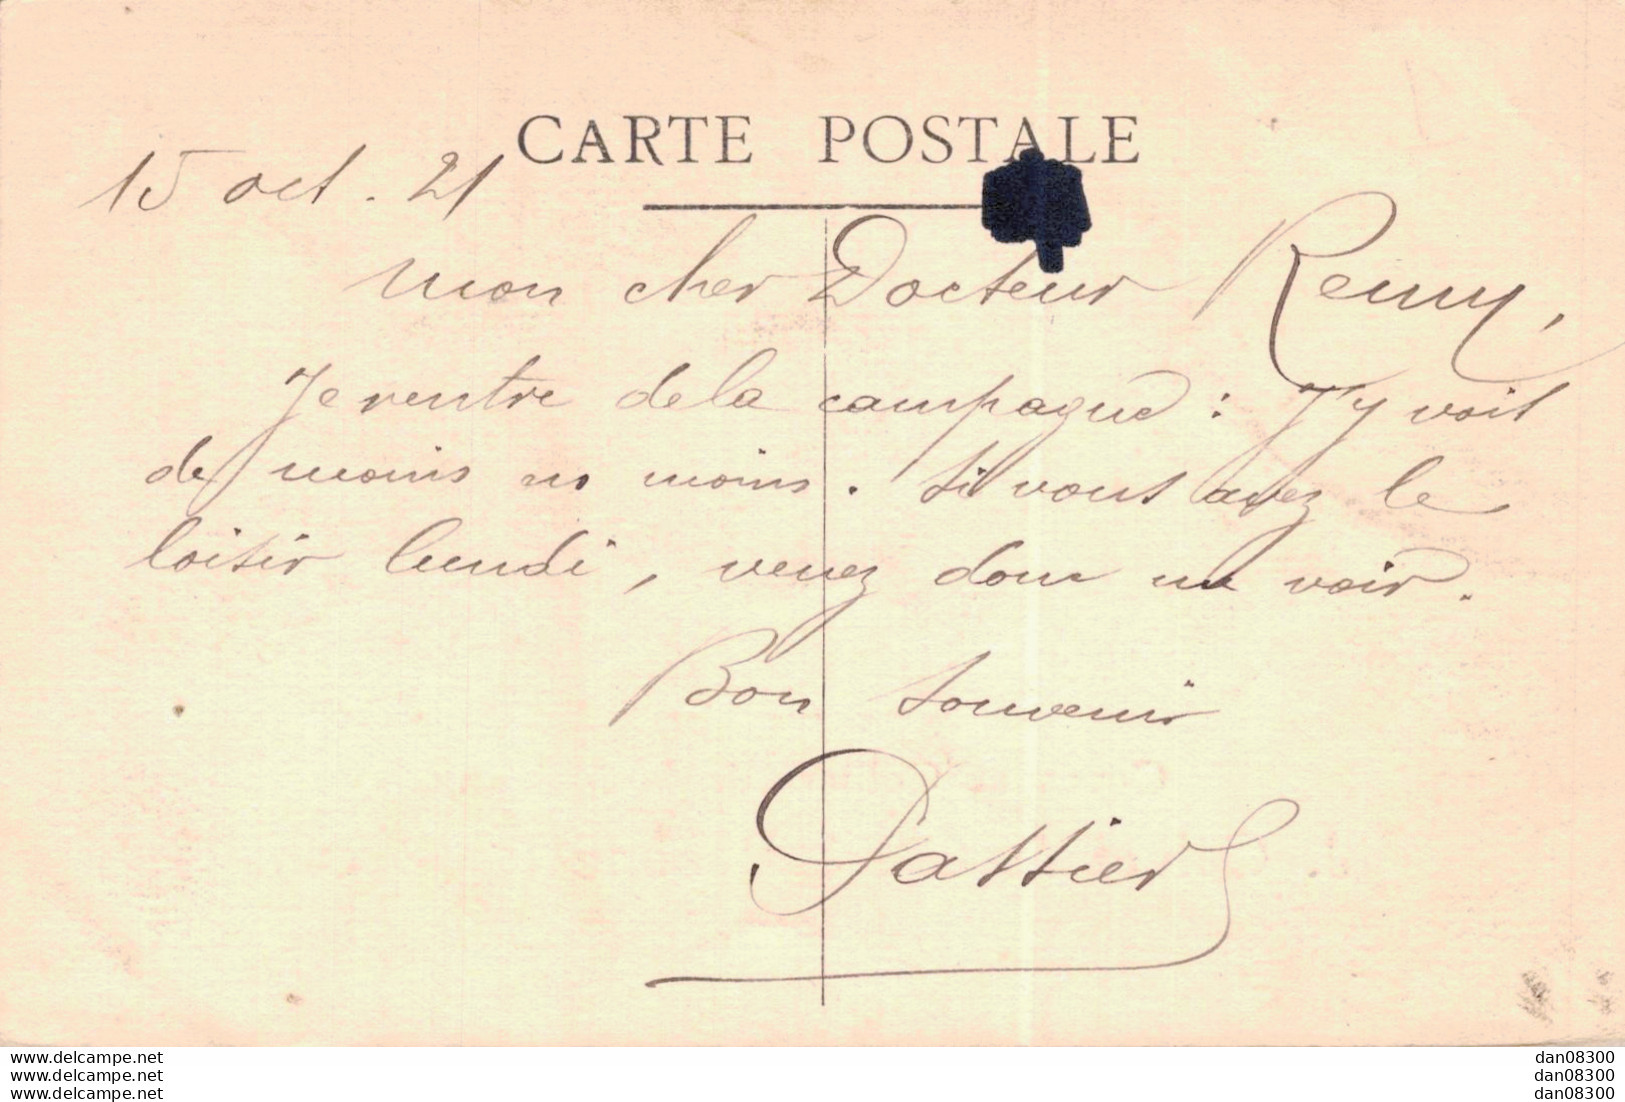 CARTE POSTALE
15 oct. 21
Mon cher Docteur Remy,
Je rentre de la campagne : J'y voit
de moins en moins. Si vous avez le
loisir lundi, venez donc me voir.
Bon Souvenir
www.delcampe.net
www.delcampe.net
www.delcampe.net
dan08300
dan08300
dan08300